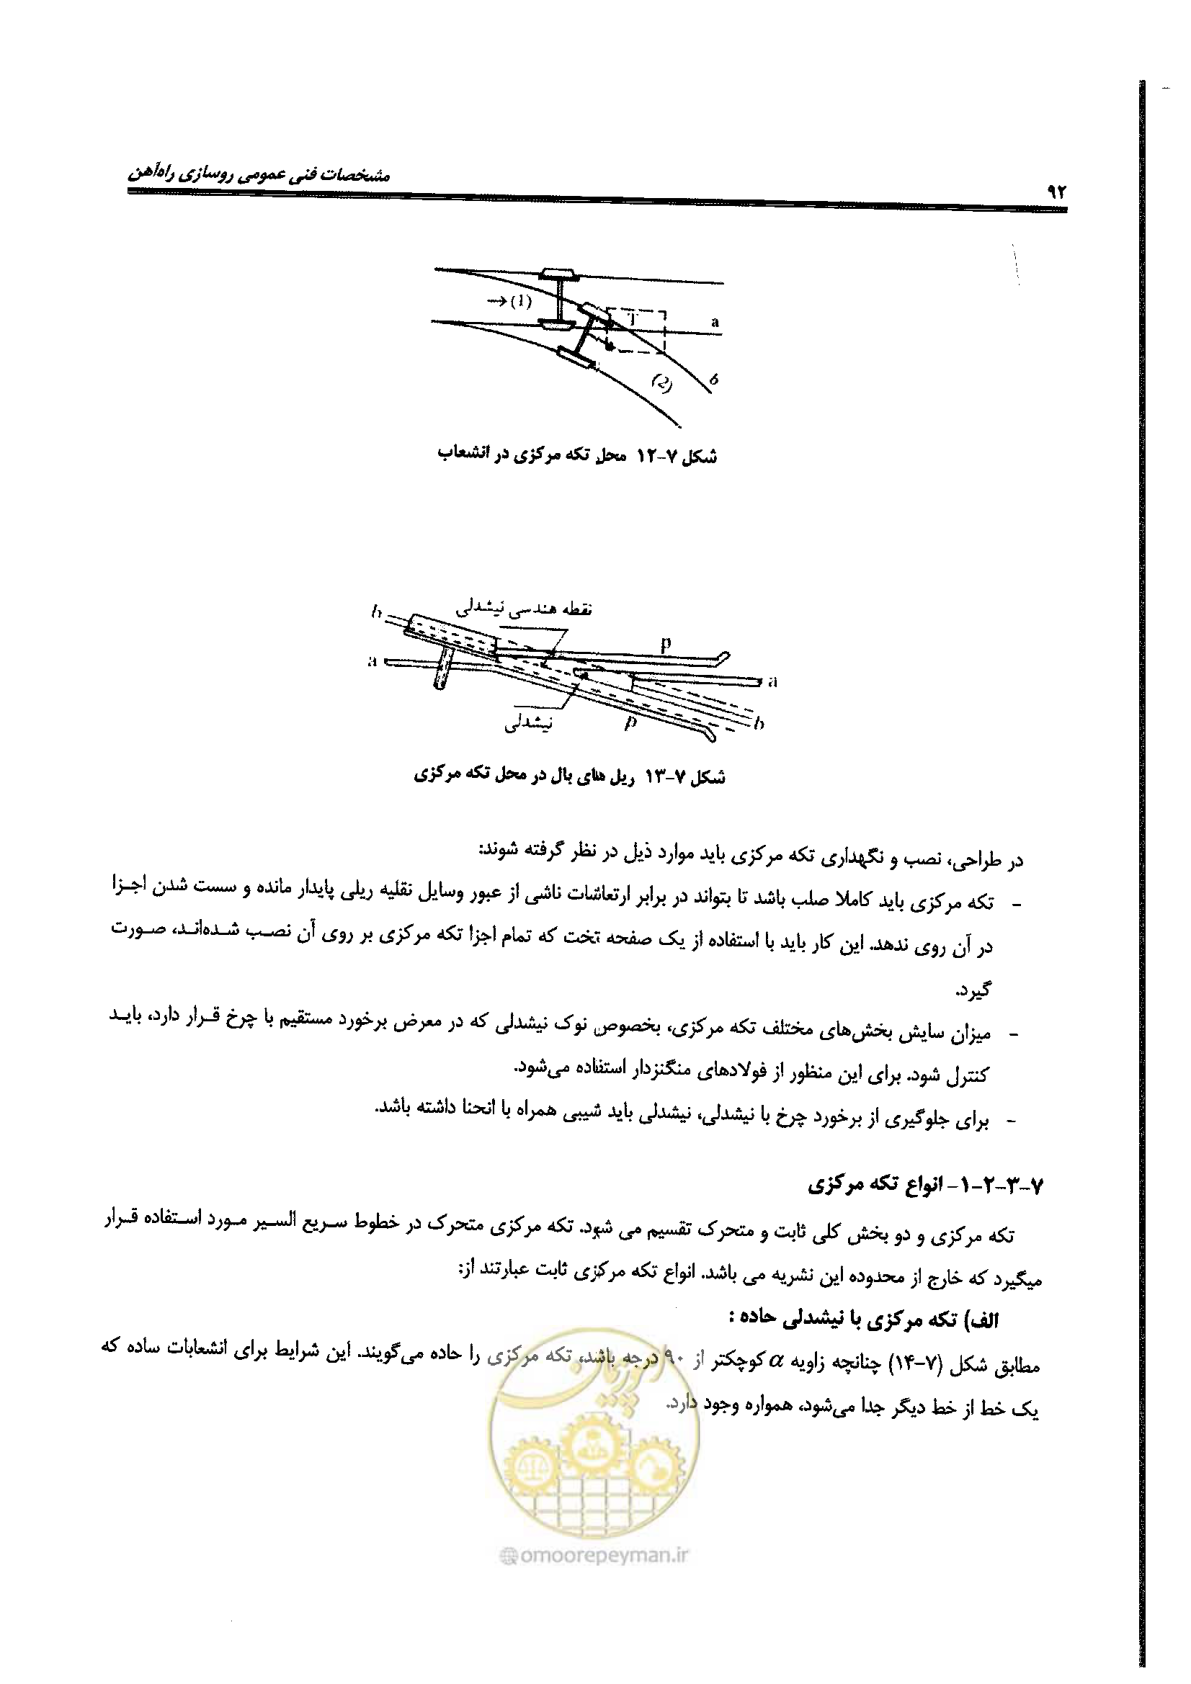 مشخصات فنی عمومی روسازی راه‌آهن
۹۲
→(1)
T
a
(2)
b
شکل ۷-۱۲ محل تکه مرکزی در انشعاب
نقطه هندسی نیشدلی
b
p
a
a
نیشدلی
p
b
شکل ۷-۱۳ ریل های بال در محل تکه مرکزی
در طراحی، نصب و نگهداری تکه مرکزی باید موارد ذیل در نظر گرفته شوند:
- تکه مرکزی باید کاملا صلب باشد تا بتواند در برابر ارتعاشات ناشی از عبور وسایل نقلیه ریلی پایدار مانده و سست شدن اجزا
در آن روی ندهد. این کار باید با استفاده از یک صفحه تخت که تمام اجزا تکه مرکزی بر روی آن نصب شده‌اند، صورت
گیرد.
- میزان سایش بخش‌های مختلف تکه مرکزی، بخصوص نوک نیشدلی که در معرض برخورد مستقیم با چرخ قرار دارد، باید
کنترل شود. برای این منظور از فولادهای منگنزدار استفاده می‌شود.
- برای جلوگیری از برخورد چرخ با نیشدلی، نیشدلی باید شیبی همراه با انحنا داشته باشد.
۷-۳-۲-۱- انواع تکه مرکزی
تکه مرکزی و دو بخش کلی ثابت و متحرک تقسیم می شود. تکه مرکزی متحرک در خطوط سریع السیر مورد استفاده قرار
میگیرد که خارج از محدوده این نشریه می باشد. انواع تکه مرکزی ثابت عبارتند از:
الف) تکه مرکزی با نیشدلی حاده :
مطابق شکل (۷-۱۴) چنانچه زاویه α کوچکتر از ۹۰ درجه باشد، تکه مرکزی را حاده می‌گویند. این شرایط برای انشعابات ساده که
یک خط از خط دیگر جدا می‌شود، همواره وجود دارد.
امور پیمان
@omoorepeyman.ir